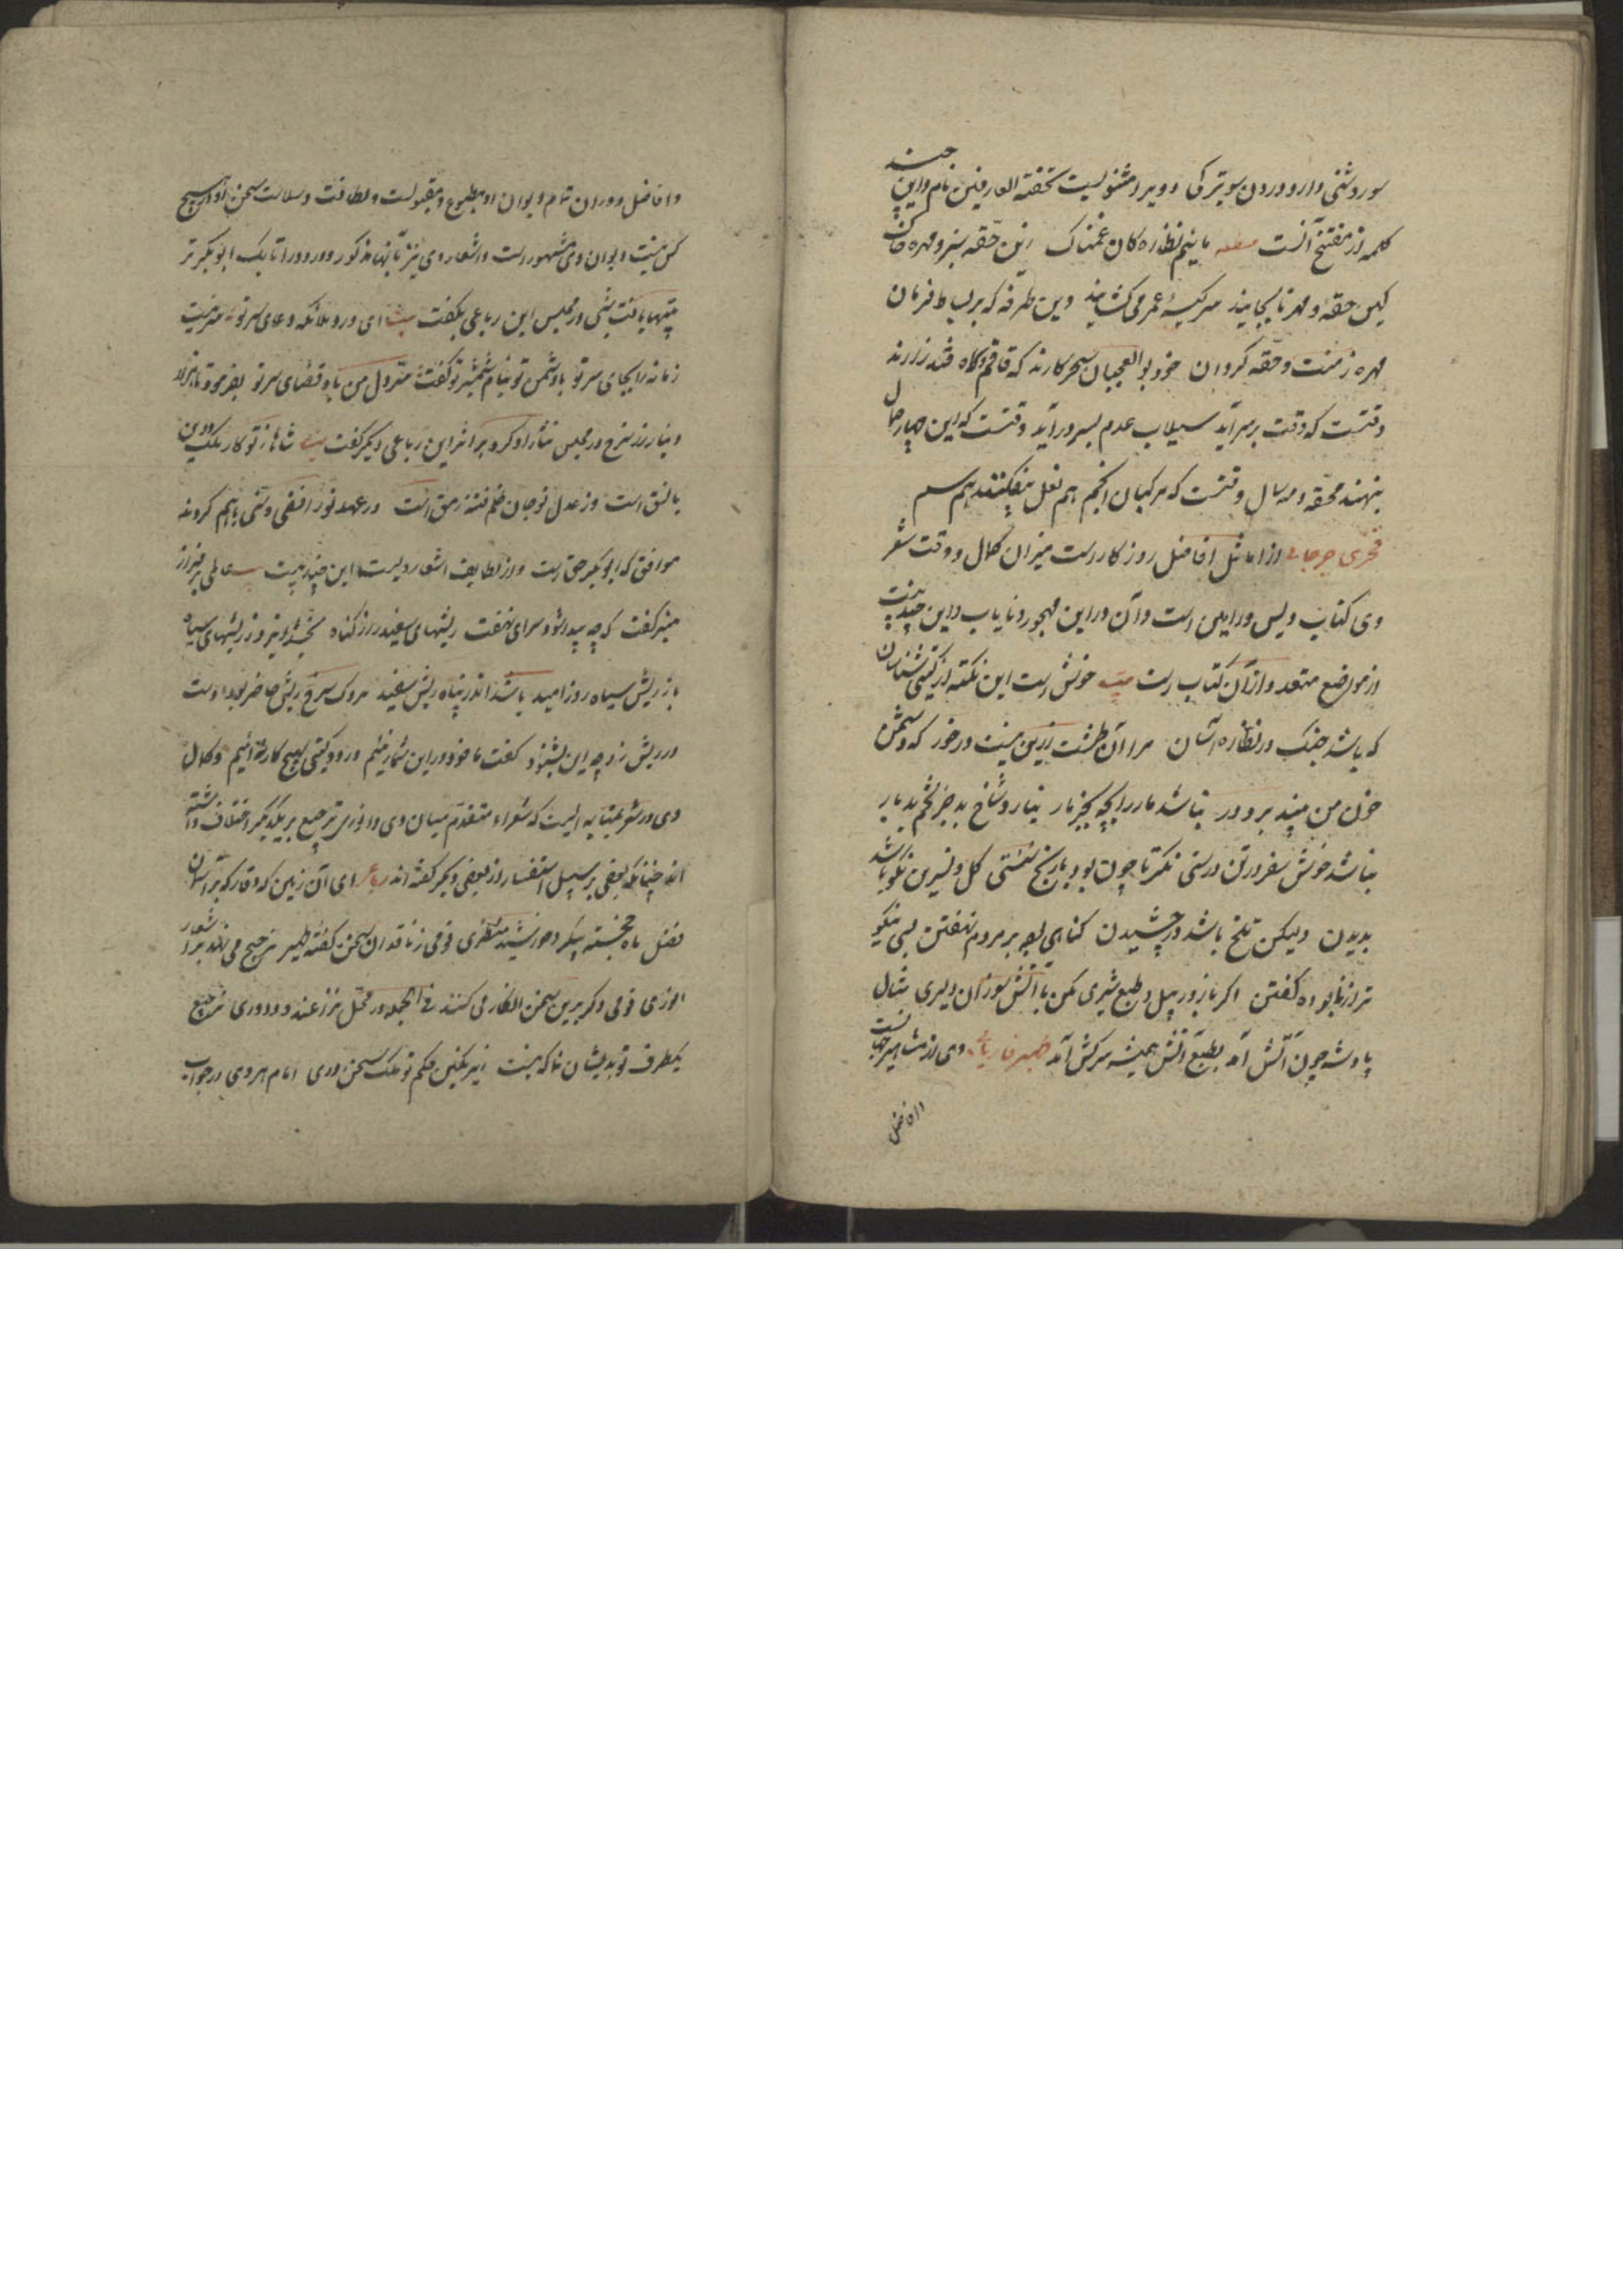 سوز و شنی دارد و درون سوبتر کی و ویرا مثنویست تحفة العراقین نام و این چند
کلمه از مفتتح آنست مائیم نظاره‌کان غمناک زین حقه سبز و مهره خاک
کین حقه و مهره تا بجایند سر کیسهٔ عمر می‌کشایند وین طرفه که بر بساط فرمان
مهره زمنست و حقه کردان خود بوالعجبان سحر کارند که قاقم و گاه قندز آرند
وقتست که وقت بر سر آید سیلاب عدم بسر در آید وقتست که این چهار حمال
بنهند محفه مه و سال وقتست که مرکبان انجم هم نعل بیفکنند هم سم
فخری جرجانی از اماثل افاضل روزگار است میزان کمال و وقت شعر
وی کتاب ویس و رامین است و آن در این مهجور و نایاب و این چند بیت
از مواضع متعدد از آن کتاب است بیت خوش است این نکته از گیتی شناسان
که باشد جنگ در نظاره آسان مرا آن طشت زرین نیست درخور که دشمن
خون من بیند برو در نباشد مار را بچه بجز مار نیارد شاخ بد جز تخم بد بار
نباشد خوش سفر در تن درستی نکر تا چون بود با رنج و سستی کل و نسرین نکو باشد
بدیدن ولیکن تلخ باشد در چشیدن کناهی بود بر مردم نهفتن بسی نیکو
تر از نابوده کفتن اکر با زور پیل و طبع شیری مکن با آتش سوزان دلیری مثال
پادشه چون آتش آمد بطبع آتش همیشه سرکش آمد ظهیر فاریابی وی از مشاهیر جهانست
و افاضل
و افاضل دوران تمام دیوان او مطبوع و مقبولست و لطافت و سلاست سخن او در هیچ
کس نیست دیوان وی مشهور است و اشعار وی نیز تا آنها مذکور و در دور اتابک ابوبکر تر
بیتها یافت شبی در مجلس این رباعی بکفت بیت ای ورد ملائکه دعای سر تو
زمانه را بجای سر تو با دشمن تو نیام شمشیر تو کفت سر دل من باد قضای سر تو بفرمود تا هزار
دینار زر سرخ در مجلس نثار او کرد بر اثر این رباعی دیکر کفت بیت شاها ز تو کار ملک و دین
با نسق است وز عدل تو جان ظلم و فتنه رمق است در عهد تو رافضی و سنی با هم کردند
موافق که ابوبکر حق است و از لطایف اشعار ویست این چند بیت عالمی بر فراز
منبر کفت که چو پیدا شود سرای نهفت ریشهای سفید را از کناه بخشد ایزد ز ریشهای سیاه
باز ریش سیاه روز امید باشد اندر پناه ریش سفید مردکی سرخ ریش حاضر بود دست
در ریش زد چو این بشنود کفت ما خود در این شمار نئیم در دو گیتی بهیچ کار نئیم و کمال
وی در شعر بمثابه ایست که شعراء متقدم میان وی و انوری ترجیح بر یکدیگر اختلاف داشته
اند چنانکه بعضی بر سبیل استفسار از بعضی دیکر کفته اند رباعی ای آن زمین که وقار که بر آسمان
فضل ماه خجسته پیکر و خورشید منظری قومی ز ناقدان سخن گفته ظهیر ترجیح می نهند بر اشعار
انوری قومی دگر برین سخن انکار می کنند فی الجمله در محل نزاعند و داوری ترجیح
یکطرف تو بدیشان نما که نیست زیر نگین حکم تو ملک سخن‌وری امام هروی در جواب